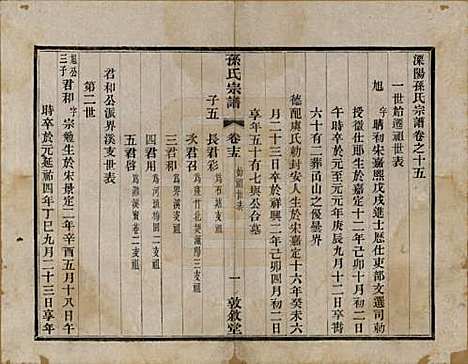 溧陽孫氏宗譜卷之十五
一世始遷祖世表
旭 字聘初宋嘉熙戊戌進士歷仕吏部文選司勅
授徵仕郎生於嘉定十二年己卯十月初二日
午時卒於元至元年庚辰九月十二日午時壽
六十有二葬甬山之優曇界
德配虞氏勅封安人生於宋嘉定十六年癸未六
月二十三日卒於祥興二年己卯四月初二日
享年五十有七與公合墓
孫氏宗譜 卷十五 始祖世表 一 敦敘堂
子五
長君彩 爲石坫支祖
次君召
三君和 爲界溪支祖
四君用
五君啓
君和公派界溪支世表
第二世
旭公三子 君和 字宗勉生於宋景定二年辛酉五月十八日午
時卒於元延祐四年丁巳九月二十三日享年